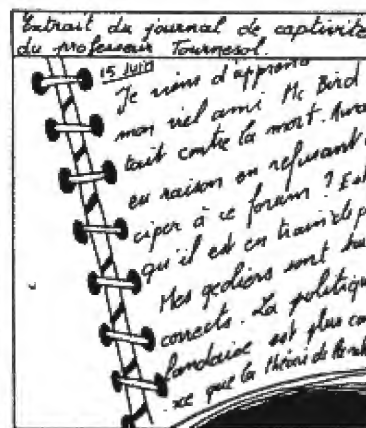 Extrait du journal de captivité
du professeur Tournesol.
15 Juin
Je viens d'appren
mon vieil ami Mc Bird
tait contre la mort.
en raison en refusant
ciper à ce forum ? Est
qu'il est en train de p
Mes geoliers sont
corrects. La politiqu
landaise est plus com
xe que la théorie de